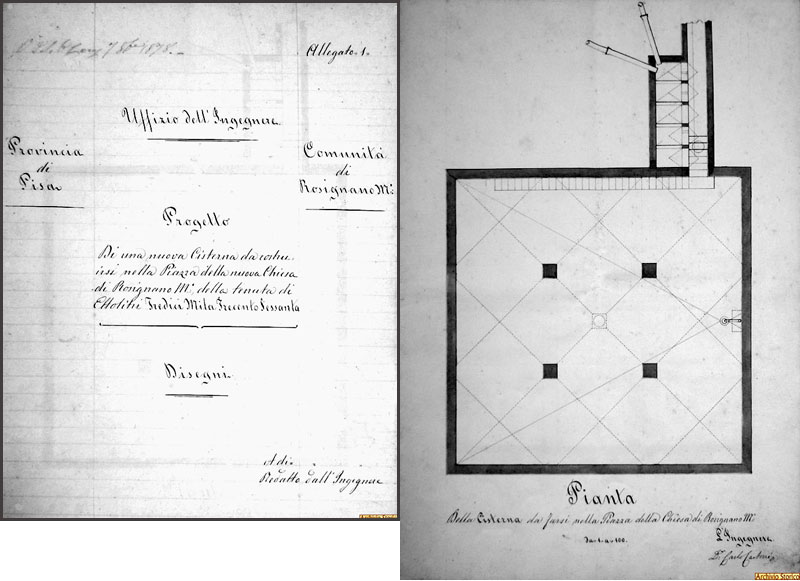 Allegato 1.
Uffizio dell'Ingegnere
Provincia
di
Pisa
Comunità
di
Rosignano Mo.
Progetto
Di una nuova Cisterna da costru-
irsi nella Piazza della nuova Chiesa
di Rosignano Mo. della tenuta di
Ettolitri Tredici Mila Trecento Sessanta
Disegni
A di
Redatto dall'Ingegnere
Archivio Storico
Pianta
Della Cisterna da farsi nella Piazza della Chiesa di Rosignano Mo.
da 1 a 100.
L'Ingegnere
Archivio Storico